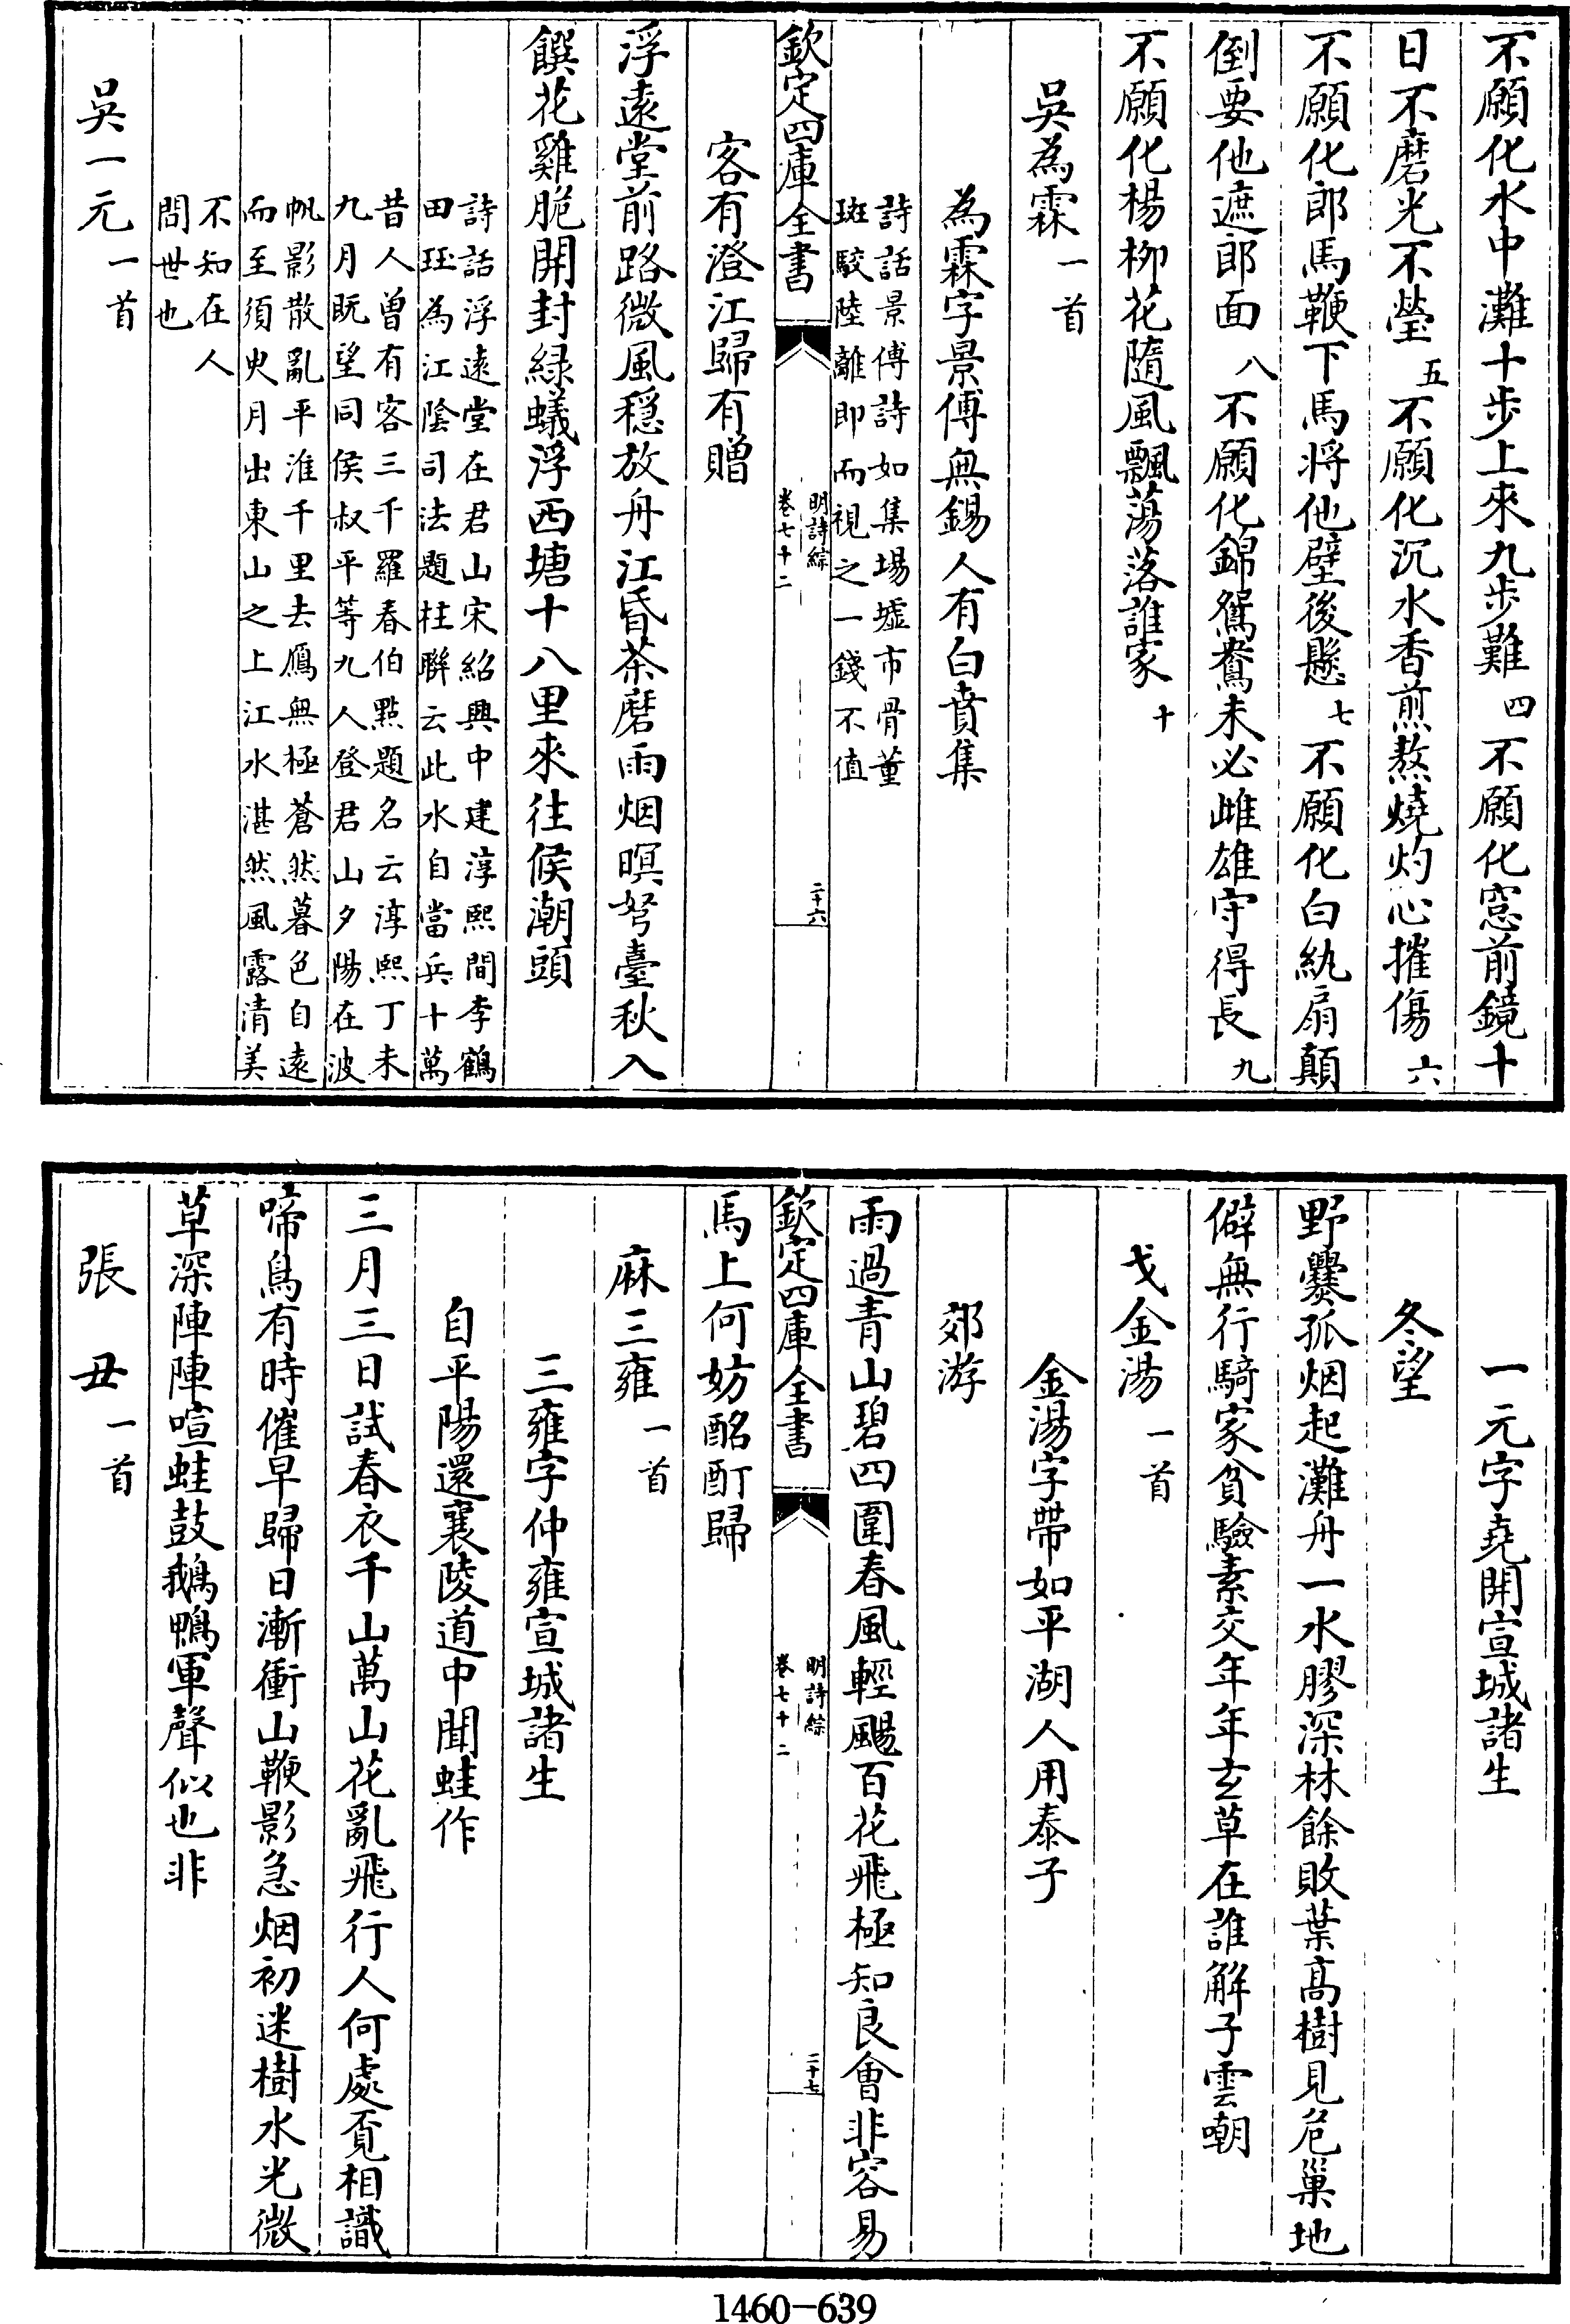 不願化水中灘十步上來九步難四不願化窓前鏡十
日不磨光不瑩五不願化沉水香煎熬燒灼心摧傷六
不願化郎馬鞭下馬將他壁後懸七不願化白紈扇顛
倒要他遮郎面八不願化錦鴛鴦未必雌雄守得長九
不願化楊柳花隨風飄蕩落誰家十
吳為霖一首
為霖字景傅無錫人有白賁集
詩話景傅詩如集場墟市骨董
斑駮陸離即而視之一錢不值
欽定四庫全書
明詩綜
卷七十二
二十六
客有澄江歸有贈
浮遠堂前路微風穩放舟江昏茶磨雨烟暝弩臺秋入
饌花雞脆開封綠蟻浮西塘十八里來往候潮頭
詩話浮遠堂在君山宋紹興中建淳熙間李鶴
田珏為江陰司法題柱聨云此水自當兵十萬
昔人曾有客三千羅春伯點題名云淳熙丁未
九月旣望同侯叔平等九人登君山夕陽在波
帆影散亂平淮千里去鴈無極蒼然暮色自遠
而至須臾月出東山之上江水湛然風露清美
不知在人
間世也
吳一元一首
一元字堯開宣城諸生
冬望
野爨孤烟起灘舟一水膠深林餘敗葉高樹見危巢地
僻無行騎家貧驗素交年年玄草在誰解子雲嘲
戈金湯一首
金湯字帶如平湖人用泰子
郊游
雨過青山碧四圍春風輕颺百花飛極知良會非容易
欽定四庫全書
明詩綜
卷七十二
二十七
馬上何妨酩酊歸
麻三雍一首
三雍字仲雍宣城諸生
自平陽還襄陵道中聞蛙作
三月三日試春衣千山萬山花亂飛行人何處覓相識
啼鳥有時催早歸日漸衝山鞭影急烟初迷樹水光微
草深陣陣喧蛙鼓鵝鴨軍聲似也非
張丑一首
1460-639